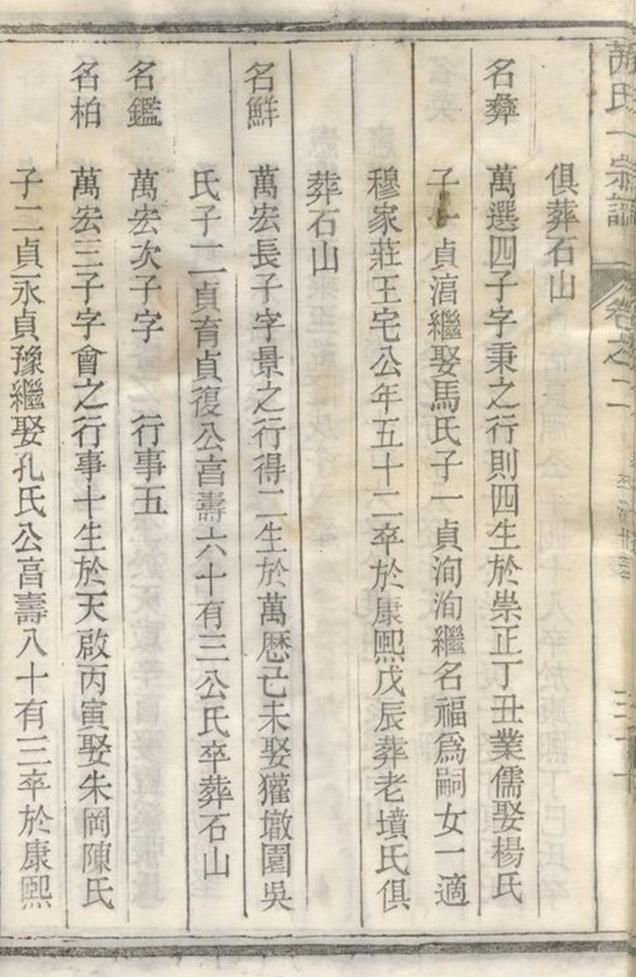 氏宗譜
卷之二
俱葬石山
名彝 萬選四子字秉之行則四生於崇正丁丑業儒娶楊氏
子一貞滀繼娶馬氏子一貞洵洵繼名福爲嗣女一適
穆家莊王宅公年五十二卒於康熙戊辰葬老墳氏俱
葬石山
名鮮 萬宏長子字景之行得二生於萬歷己未娶獾墩園吳
氏子二貞育貞復公啻壽六十有三公氏卒葬石山
名鑑 萬宏次子字 行事五
名柏 萬宏三子字會之行事十生於天啟丙寅娶朱岡陳氏
子二貞永貞豫繼娶孔氏公啻壽八十有三卒於康熙